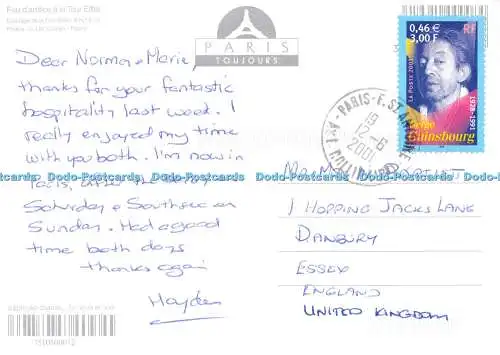 Feu d'artifice à la Tour Eiffel
PARIS
TOUJOURS
Dear Norma & Marie,
thanks for your fantastic
hospitality last week. I
really enjoyed my time
with you both. I'm now in
Paris, after the
Saturday & Southsea on
Sunday. Had a good
time both days
thanks again
Hayden
0,46 €
3,00 F
RF
La Poste 2001
Serge
Gainsbourg
1928-1991
PARIS
19
12-6
2001
Dodo-Postcards Dodo-Postcards Dodo-Postcards Dodo-Postcards
1 HOPPING JACKS LANE
DANBURY
ESSEX
ENGLAND
UNITED KINGDOM